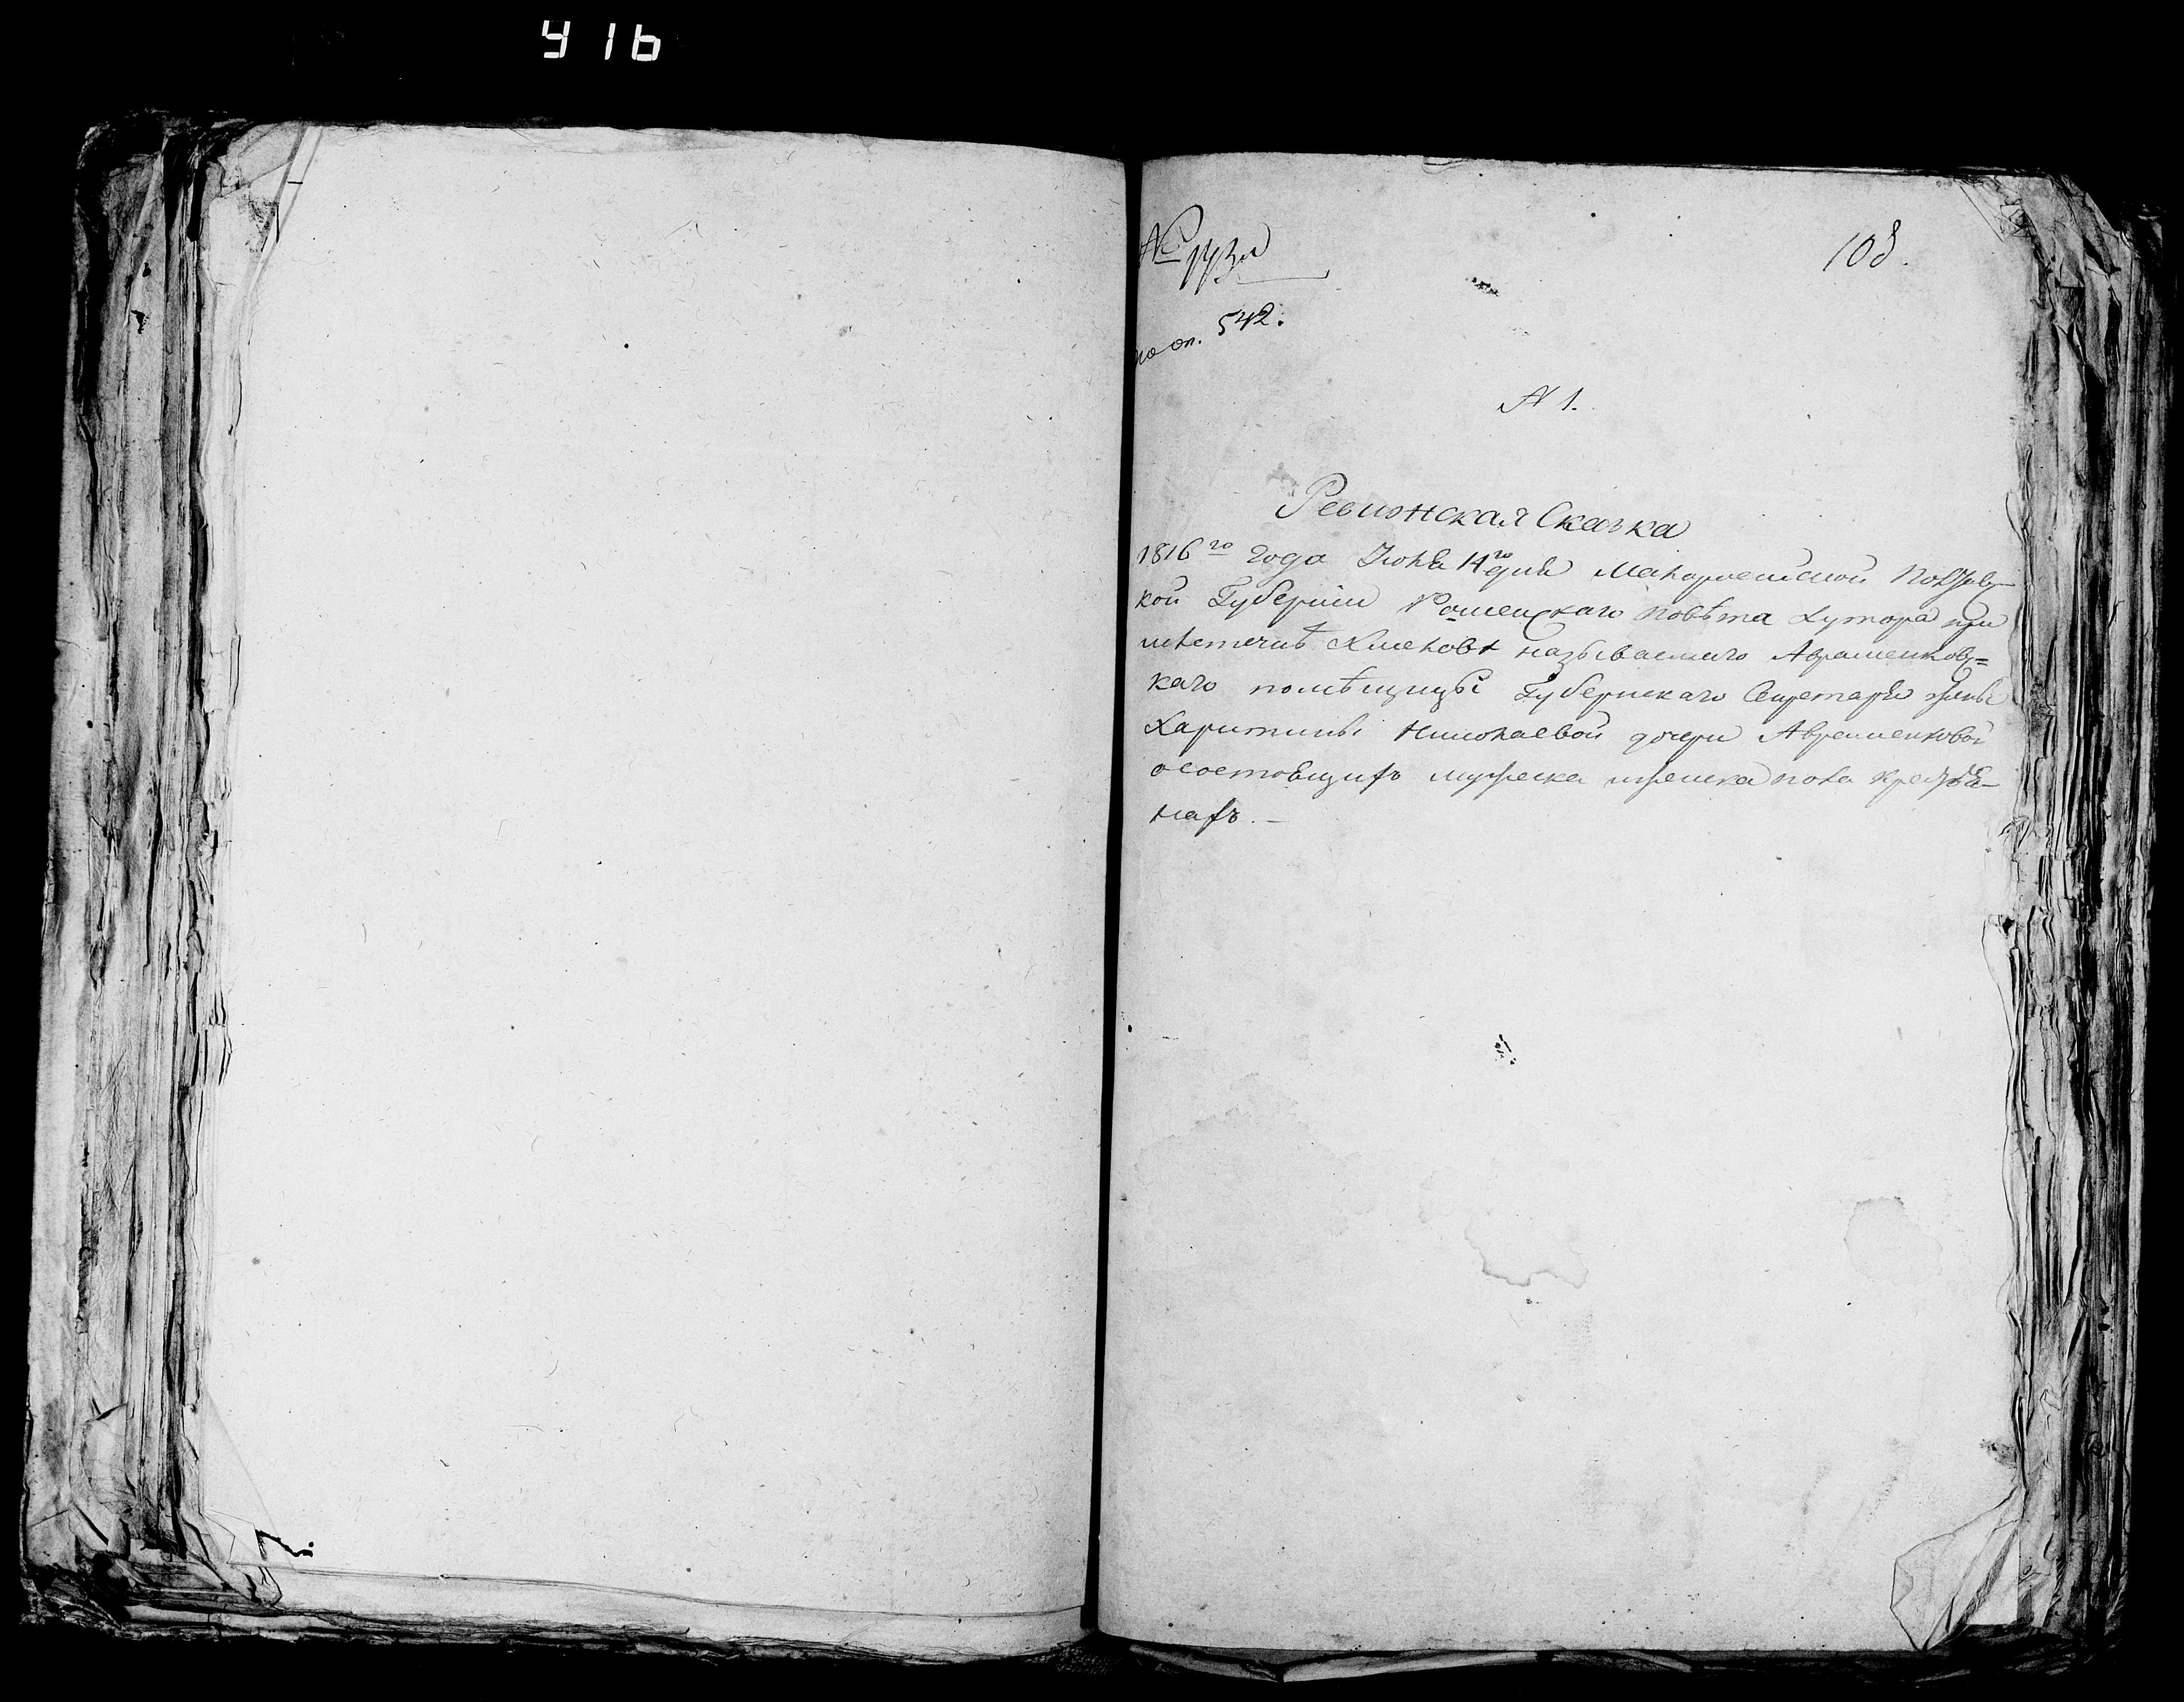 416
103.
№
по оп. 542.
№ 1.
Ревизская Сказка
1816го года Июня 14го дня Малороссійской Полтавс-
кой Губерніи Роменскаго повѣта хутора при
мѣстечкѣ Хмеловѣ называемаго Авраменковс=
каго помѣщицы Губернскаго Секретаря жены
Харитины Николаевой дочери Авраменковой
о состоящихъ мужеска и женска пола крестья-
нахъ. —